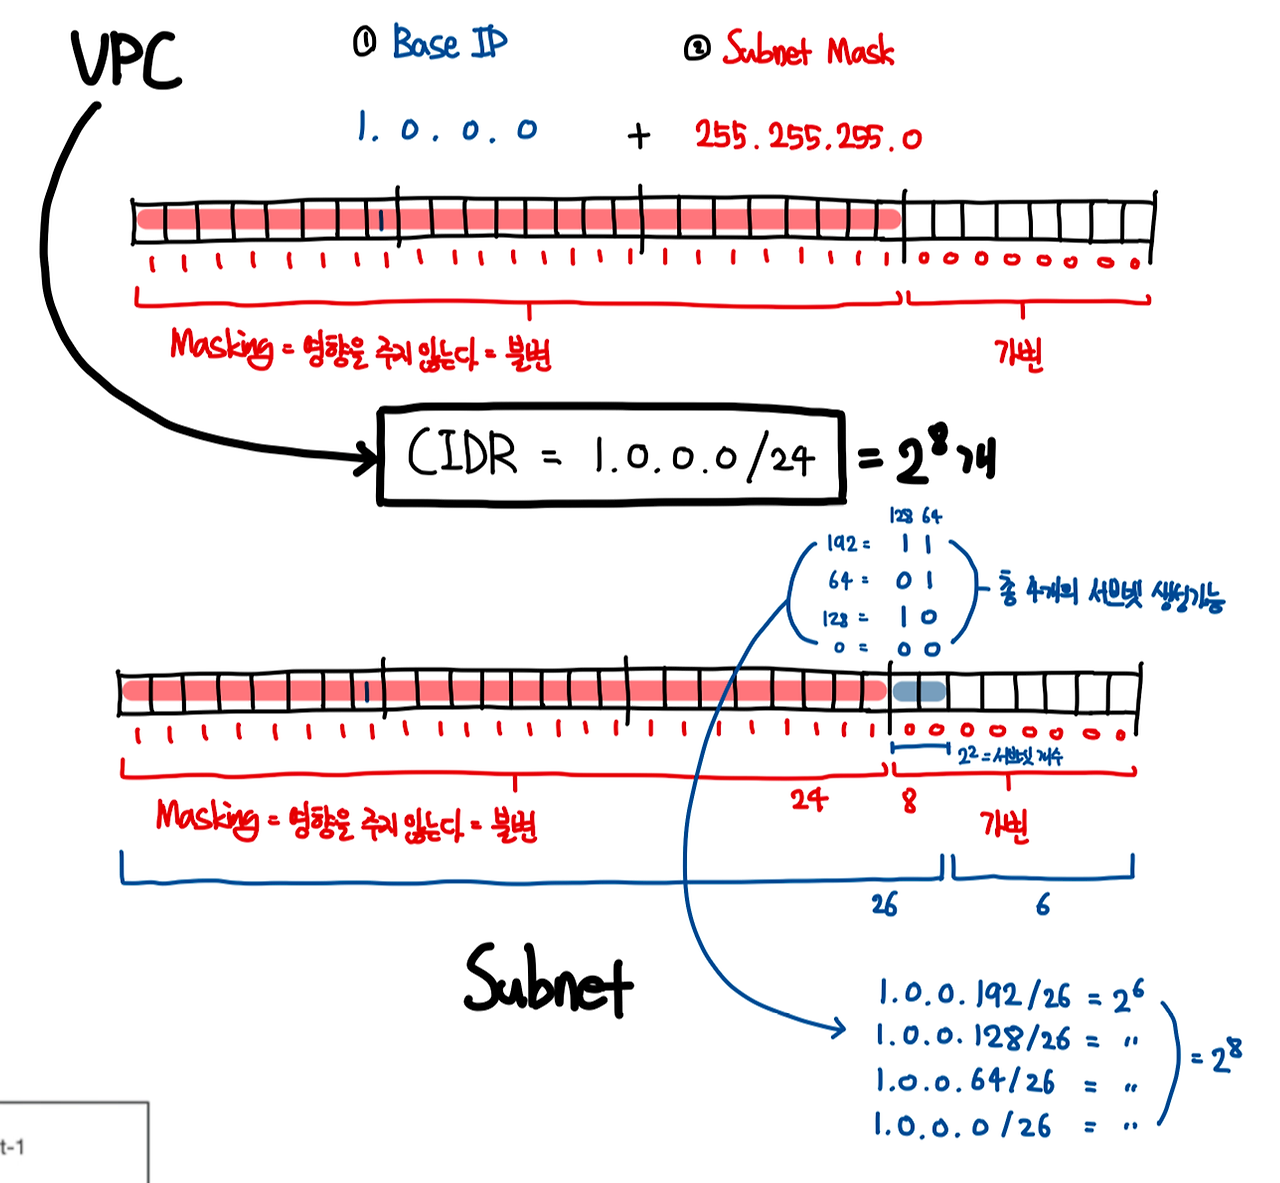 VPC
① Base IP
② Subnet Mask
1. 0. 0. 0 + 255.255.255.0
1
1 1 1 1 1 1 1 1 1 1 1 1 1 1 1 1 1 1 1 1 1 1 1 1 0 0 0 0 0 0 0 0
Masking = 영향을 주지 않는다 = 불변
가변
CIDR = 1.0.0.0/24 = 2⁸개
128 64
192 = 1 1
64 = 0 1
128 = 1 0
0 = 0 0
총 4개의 서브넷 생성가능
1
1 1 1 1 1 1 1 1 1 1 1 1 1 1 1 1 1 1 1 1 1 1 1 1 0 0 0 0 0 0 0 0
2² = 서브넷 개수
24 8
Masking = 영향을 주지 않는다 = 불변
가변
26 6
Subnet
1.0.0.192/26 = 2⁶
1.0.0.128/26 = "
1.0.0.64/26 = "
1.0.0.0/26 = "
= 2⁸
t-1